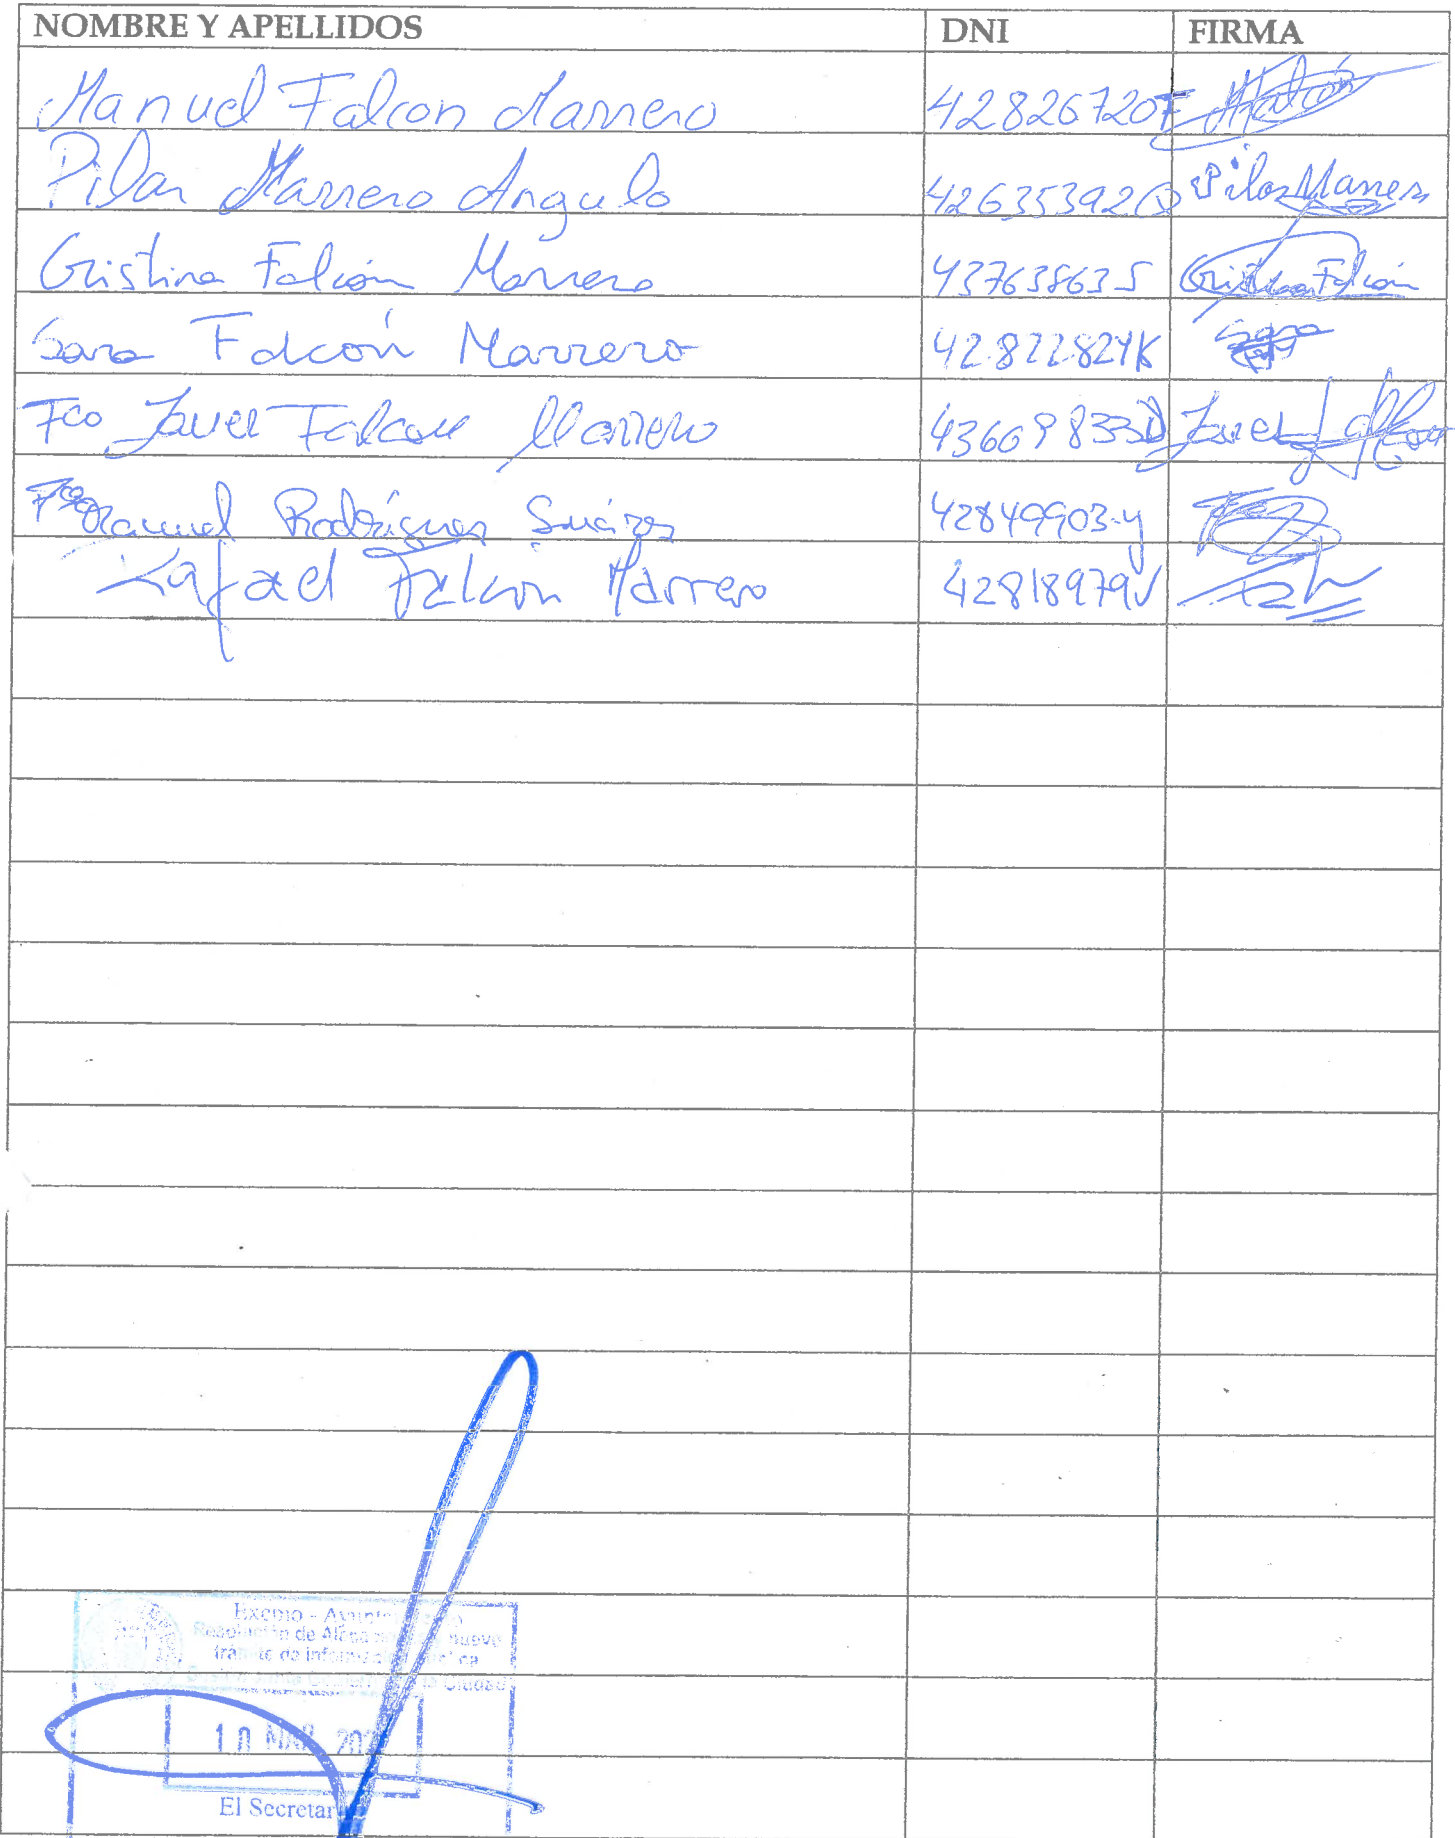 NOMBRE Y APELLIDOS DNI FIRMA
Manuel Falcon Marrero 42826720F Falcón
Pilar Marrero Angulo 42635392Q Pilar Marrero
Cristina Falcón Marrero 43763863S Cristina Falcón
Sara Falcón Marrero 42822824K Sara
Fco Javier Falcon Marrero 43669833D Javier
Manuel Rodríguez Suárez 42849903-y
Rafael Falcon Marrero 42818979V
Excmo - Ayuntamiento
Resolución de nuevo
trámite de información
Ciudad
10 MAR 202
El Secretar